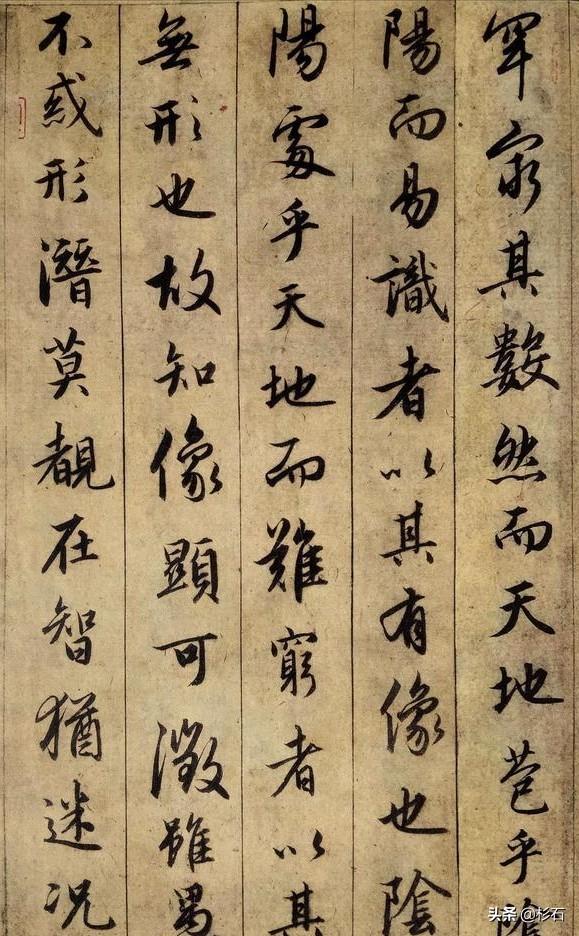 罕窮其數然而天地苞乎陰
陽而易識者以其有像也陰
陽處乎天地而難窮者以其
無形也故知像顯可徵雖愚
不惑形潛莫覩在智猶迷况
头条 @杉石